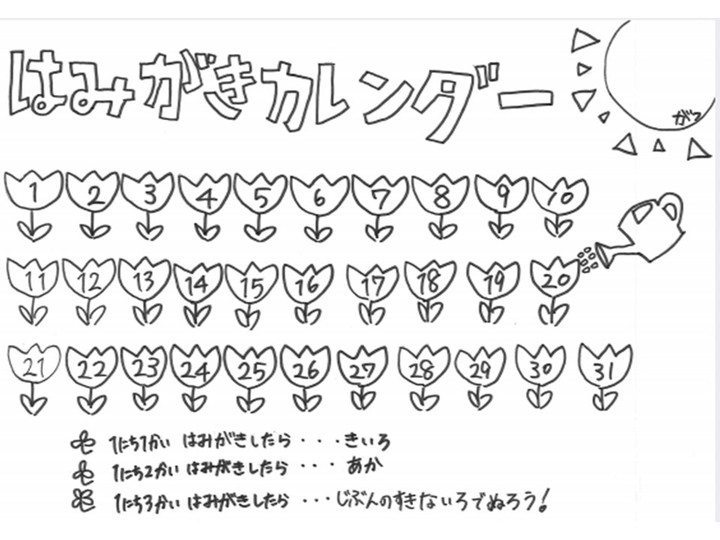 はみがきカレンダー
がつ
1 2 3 4 5 6 7 8 9 10
11 12 13 14 15 16 17 18 19 20
21 22 23 24 25 26 27 28 29 30 31
1にち1かい はみがきしたら・・・きいろ
1にち2かい はみがきしたら・・・あか
1にち3かい はみがきしたら・・・じぶんのすきないろでぬろう!